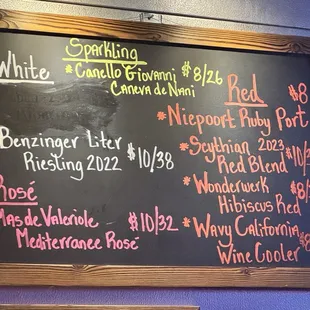 Sparkling
* Canello Giovanni $8/26
Caneva de Nani
White
Benzinger Liter $10/38
Riesling 2022
Rosé
Mas de Valeriole $10/32
Mediterranee Rosé
Red
* Niepoort Ruby Port $8
* Scythian 2023 $10/3
Red Blend
* Wonderwerk $8/
Hibiscus Red
* Wavy California $8
Wine Cooler